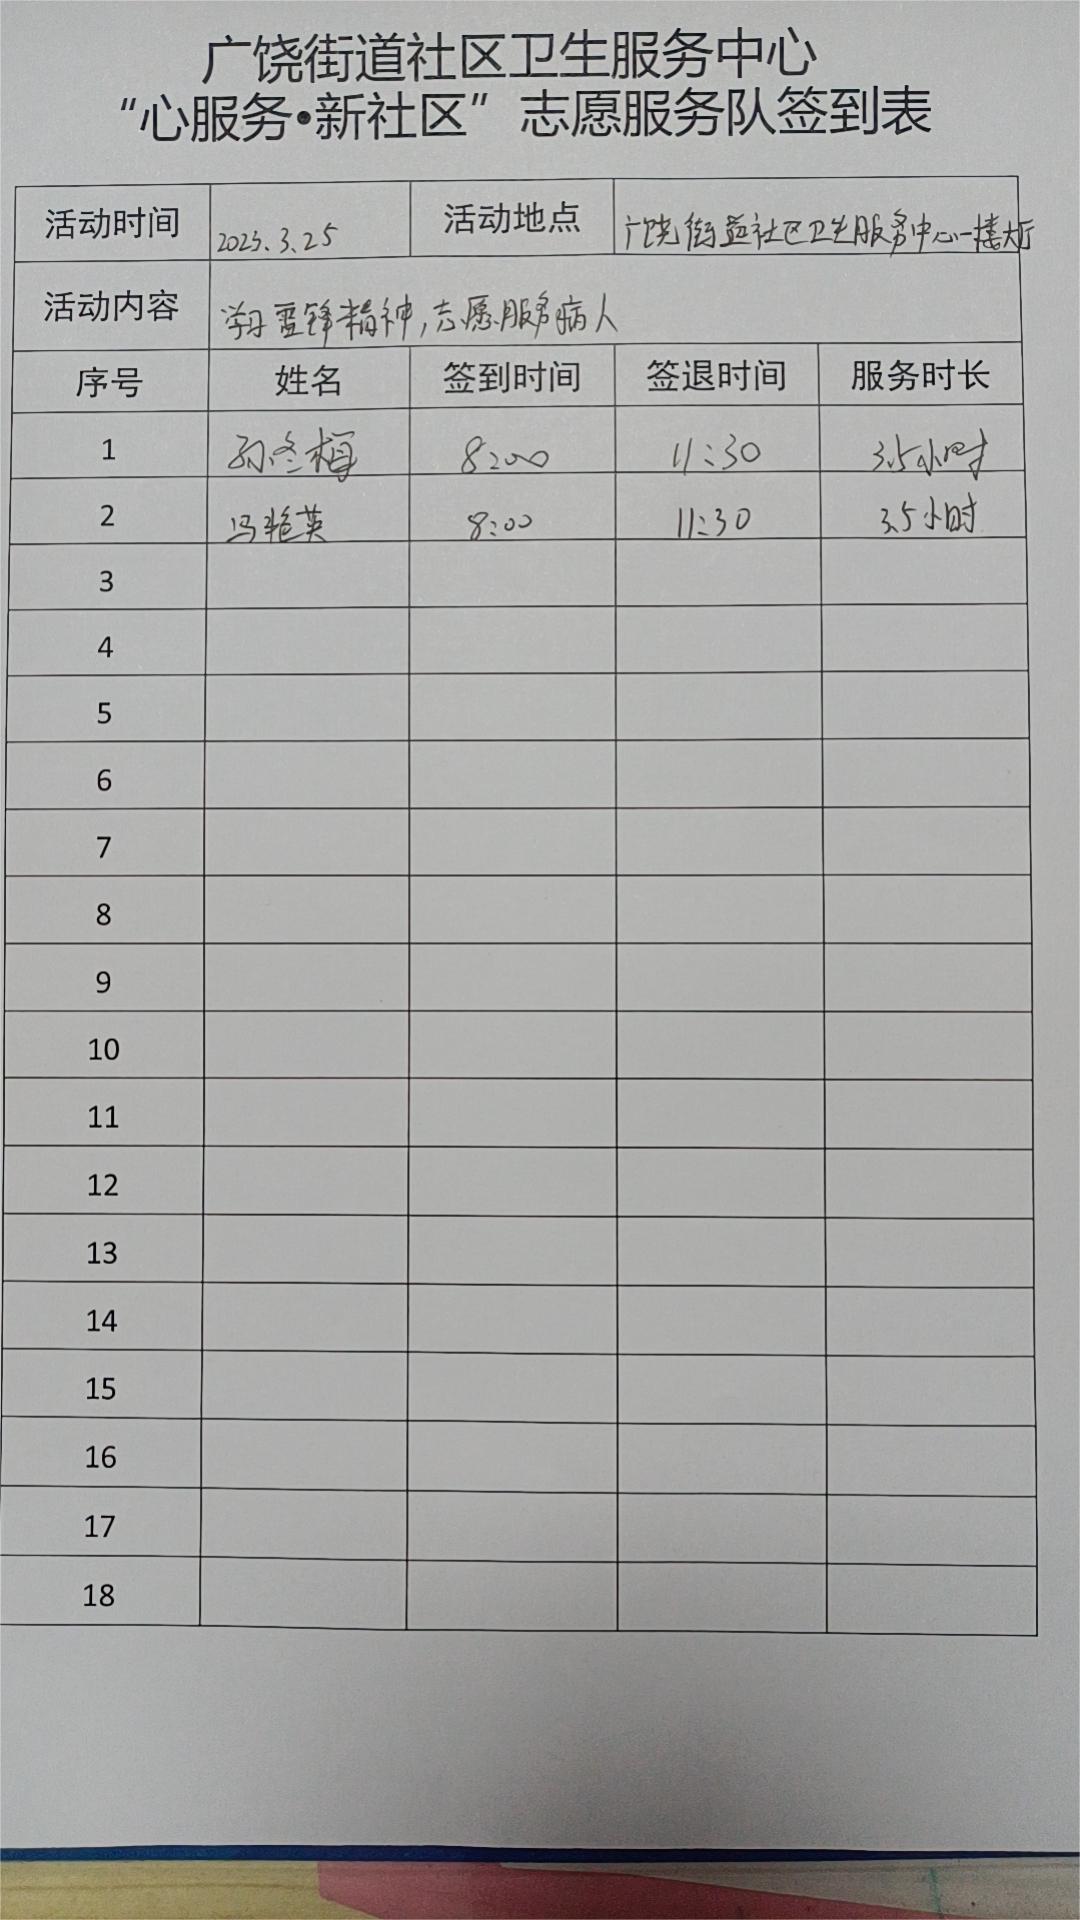 广饶街道社区卫生服务中心
“心服务•新社区”志愿服务队签到表
活动时间 2023.3.25 活动地点 广饶街道社区卫生服务中心一楼大厅
活动内容 学习雷锋精神,志愿服务病人
序号 姓名 签到时间 签退时间 服务时长
1 孙冬梅 8:00 11:30 3.5小时
2 冯艳英 8:00 11:30 3.5小时
3
4
5
6
7
8
9
10
11
12
13
14
15
16
17
18